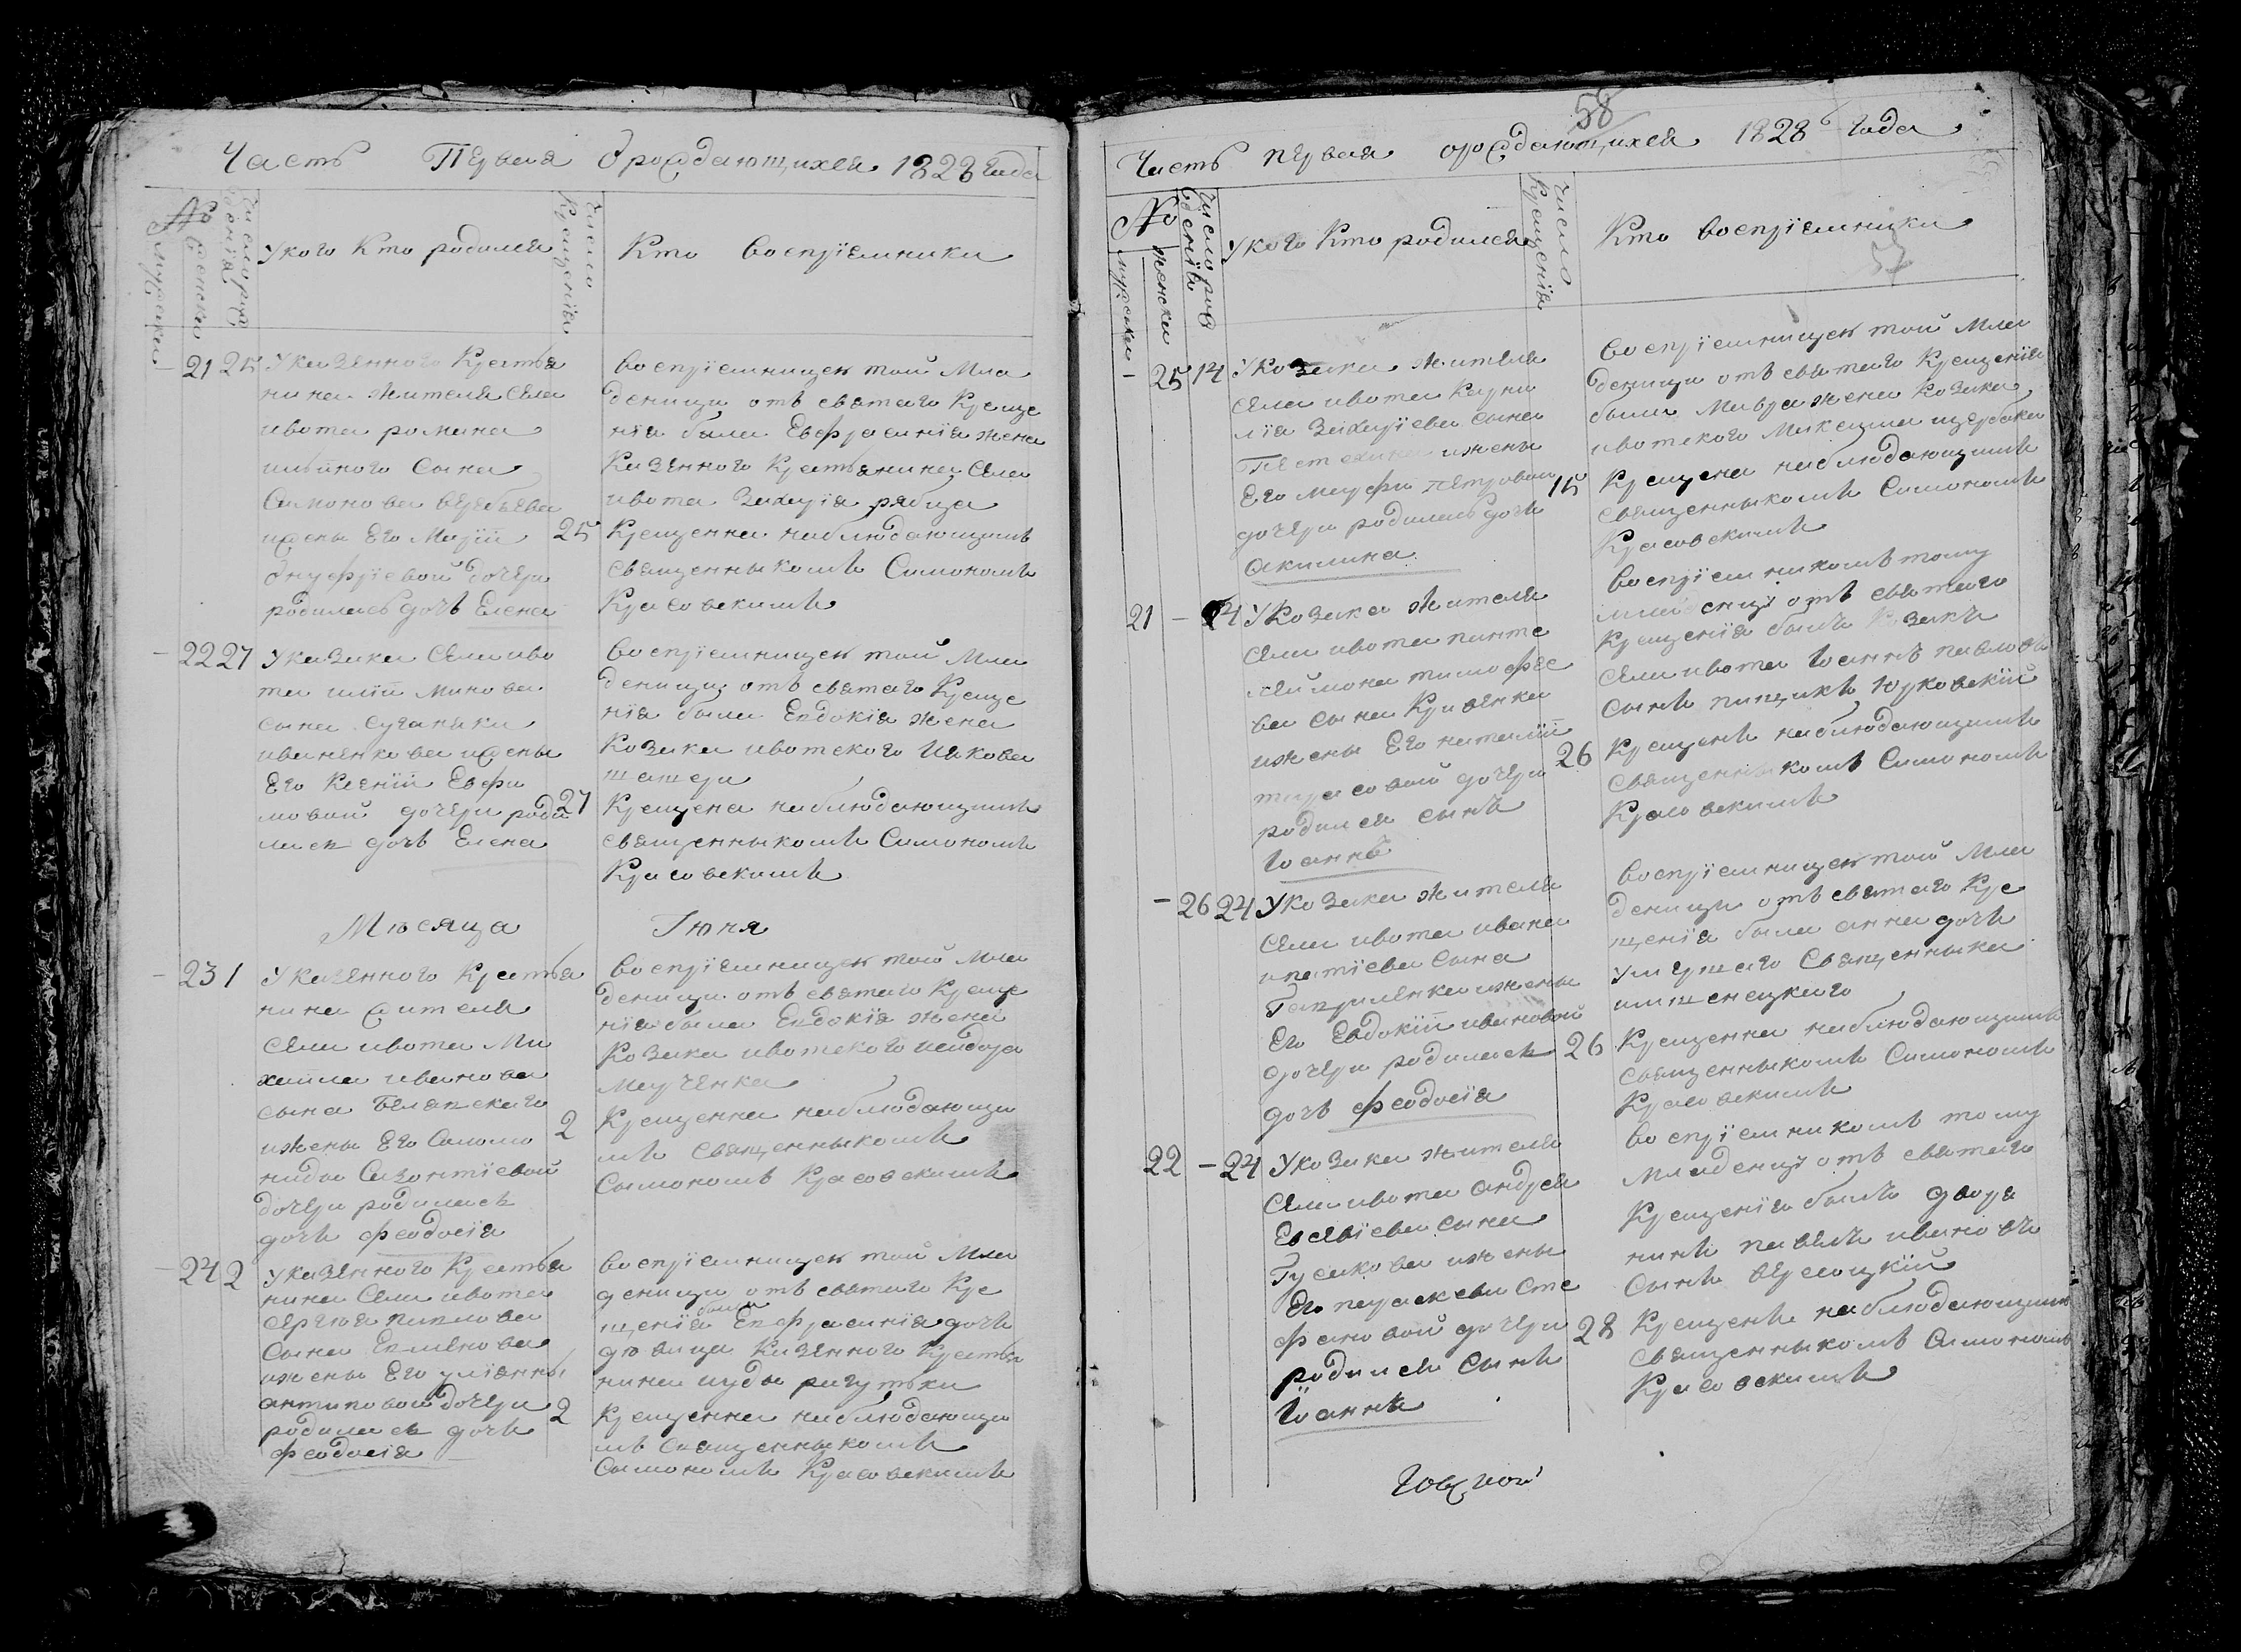 Часть Первая ораждающихся 1828 года
№
мужеска
женска
Число рождения
У кого Кто родился
Число Крещенія
Кто воспріемники
21 25 У казенного Крестья
нина жителя Села
ивота романа
сына
Самонова
жены Его Маріи
Онуфріевой дочери
родилась дочь Елена
воспріемницею той Мла
деницы отъ святаго Креще
нія была Евфросинія жена
Казенного Крестьянина Села
ивота Захарія рябца
25 Крещенна наблюдающимъ
священныкомъ Симономъ
Красовскимъ
22 27 У казака Села иво
та иліи минова
сына
иваненкова жены
Его Ксеніи Евфи
мовой дочери роди
лася дочь Елена
воспріемницею той Мла
деницы отъ святаго Креще
нія была Евдокія жена
Козака ивотского Иякова
27 Крещена наблюдающимъ
священныкомъ Симономъ
Красовскимъ
Мѣсяца Іюня
23 1 У казенного Крестья
нина жителя
Села ивота Ми
хаила иванова
сына
жены Его Соломо
ниды Сазонтіевой
дочери родилася
дочь феодосія
воспріемницею той Мла
деницы отъ святаго Креще
нія была Евдокія жена
Козака ивотского исидора
2 Крещенна наблюдающи
мъ Священныкомъ
Сымономъ Красовскимъ
24 2 У казенного Крестья
нина Села ивота
Сергѣя павлова
Сына Емлянова
жены Его уліянны
антиповой дочери
родилася дочь
феодосія
воспріемницею той Мла
деницы отъ святаго Кре
щенія была Евфрасинія дочь
дѣвица Казенного Крестья
нина иуды
2 Крещенна наблюдающи
мъ Священныкомъ
Сымономъ Красовскимъ
58
Часть первая ораждающихся 1828 Года
№
мужеска
женска
Число рождения
У кого Кто родился
Число Крещенія
Кто воспріемники
25 14 У Козака жителя
Села ивота Карни
лія Захаріева сына
жены
Его Марфы петровой
дочери родилась дочь
акилина
воспріемницею той Мла
деницы отъ святаго Крещенія
была Мавра жена Козака
ивотского Максима щербака
15 Крещена наблюдающимъ
священныкомъ Симономъ
Красовскимъ
21 – 24 У Козака жителя
Села ивота панте
леймона тимофее
ва сына Кривенка
жены Его наталіи
тарасовой дочери
родился сынъ
Іоаннъ
воспріемникомъ тому
младенцу отъ святаго
Крещенія былъ Козакъ
Села ивота Іоаннъ павловъ
сынъ Юрковскій
26 Крещенъ наблюдающимъ
Священныкомъ Симономъ
Красовскимъ
– 26 24 У Козака жителя
Села ивота ивана
ипатіева Сына
Гавриленка жены
Его Евдокіи ивановой
дочери родилася
дочь феодосія
воспріемницею той Мла
деницы отъ святаго Кре
щенія была анна дочь
умершаго Священныка
26 Крещенна наблюдающимъ
священныкомъ Симономъ
Красовскимъ
22 – 24 У Козака жителя
Села ивота андрея
Евсевіева сына
Гусакова жены
Его параскевы Сте
фановой дочери
родился Сынъ
Іоаннъ
воспріемникомъ тому
Младенцу отъ святаго
Крещенія былъ дворя
нинъ павелъ ивановъ
Сынъ
28 Крещенъ наблюдающимъ
Священныкомъ Симономъ
Красовскимъ